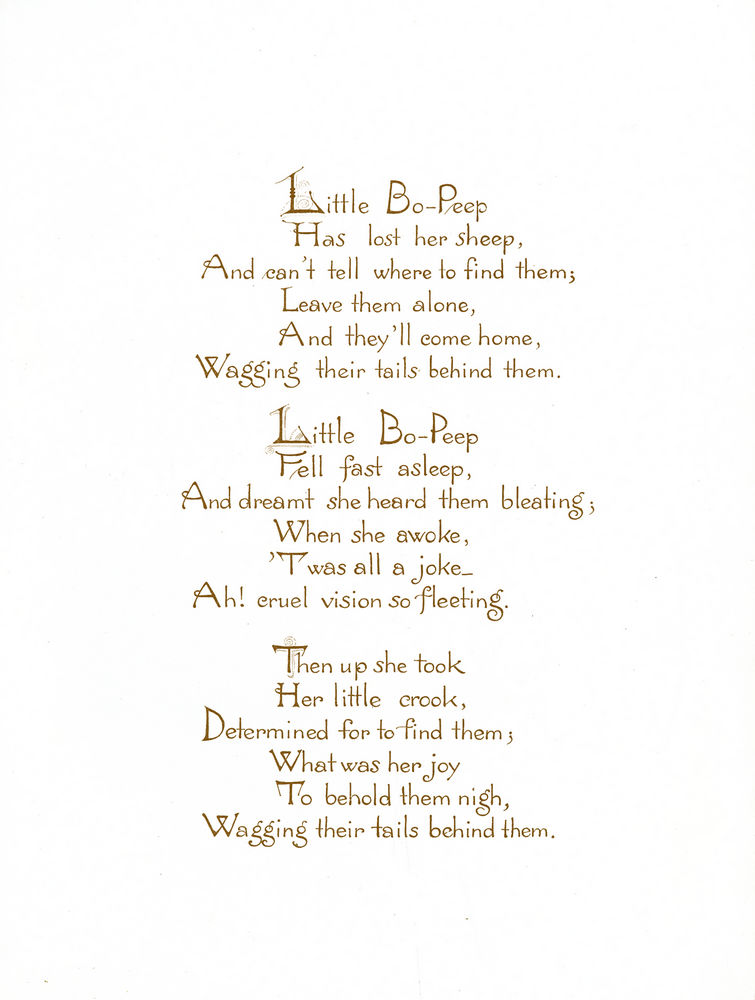 Little Bo-Peep
Has lost her sheep,
And can't tell where to find them;
Leave them alone,
And they'll come home,
Wagging their tails behind them.
Little Bo-Peep
Fell fast asleep,
And dreamt she heard them bleating;
When she awoke,
'Twas all a joke—
Ah! cruel vision so fleeting.
Then up she took
Her little crook,
Determined for to find them;
What was her joy
To behold them nigh,
Wagging their tails behind them.